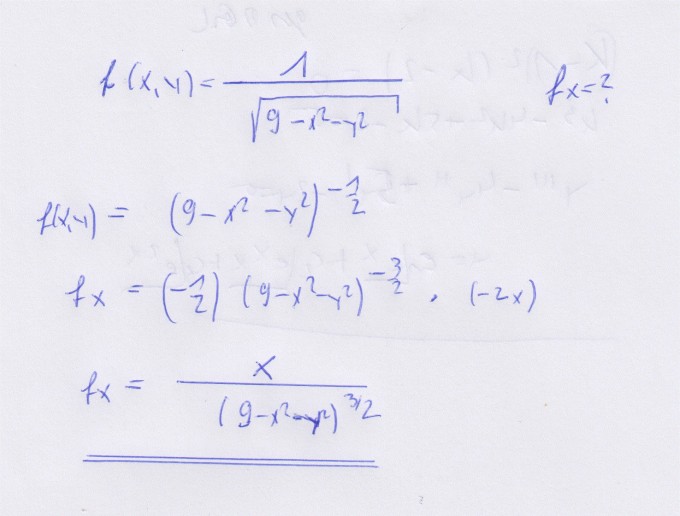 f(x,y) = 1/√(9-x²-y²) fx = ?
f(x,y) = (9-x²-y²)^(-1/2)
fx = (-1/2) (9-x²-y²)^(-3/2) . (-2x)
fx = x/(9-x²-y²)^(3/2)